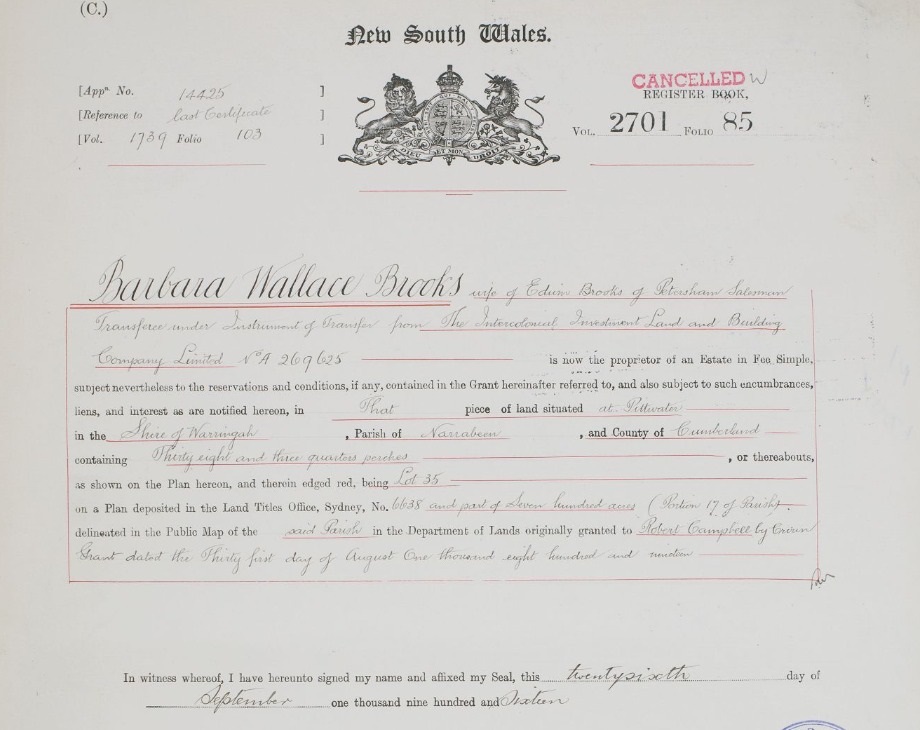 (C.)
New South Wales.
[Appn No. 14425 ]
[Reference to last Certificate ]
[Vol. 1739 Folio 103 ]
CANCELLED
REGISTER BOOK,
VOL. 2701 FOLIO 85
DIEU ET MON DROIT
Barbara Wallace Brooks wife of Edwin Brooks of Petersham Salesman
Transferee under Instrument of Transfer from The Intercolonial Investment Land and Building
Company Limited No A 269625 is now the proprietor of an Estate in Fee Simple,
subject nevertheless to the reservations and conditions, if any, contained in the Grant hereinafter referred to, and also subject to such encumbrances,
liens, and interest as are notified hereon, in That piece of land situated at Pittwater
in the Shire of Warringah , Parish of Narrabeen , and County of Cumberland
containing Thirty eight and three quarters perches , or thereabouts,
as shown on the Plan hereon, and therein edged red, being Lot 35
on a Plan deposited in the Land Titles Office, Sydney, No. 6638 and part of Seven hundred acres (Portion 17 of Parish)
delineated in the Public Map of the said Parish in the Department of Lands originally granted to Robert Campbell by Crown
Grant dated the Thirty first day of August One thousand eight hundred and nineteen
In witness whereof, I have hereunto signed my name and affixed my Seal, this twentysixth day of
September one thousand nine hundred and Sixteen